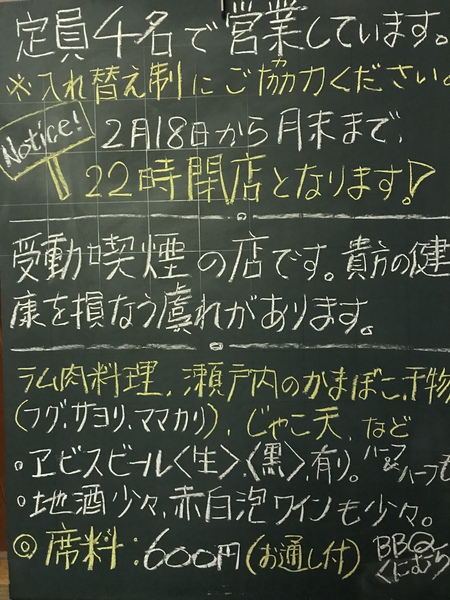 定員4名で営業しています。
※入れ替え制にご協力ください。
Notice!
2月18日から月末まで、
22時閉店となります!
受動喫煙の店です。貴方の健
康を損なう虞れがあります。
ラム肉料理、瀬戸内のかまぼこ、干物
(フグ、サヨリ、ママカリ)、じゃこ天、など
◦ヱビスビール〈生〉、〈黒〉、有り。ハーフ&ハーフも
◦地酒少々、赤白泡ワインも少々。
◎席料:600円(お通し付)
BBQ
くにむら